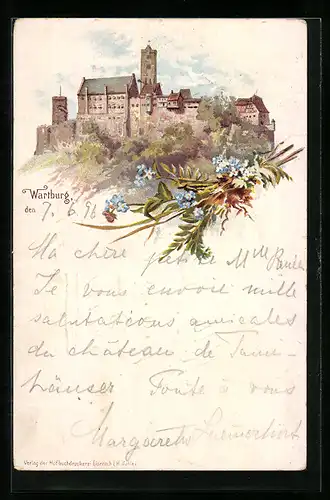 Wartburg,
den 7. 6. 96
Ma chère petite Mlle
Je vous envoie mille
salutations amicales
du château de Tann-
häuser Toute à vous
Margarethe
Verlag der Hofbuchdruckerei Eisenach